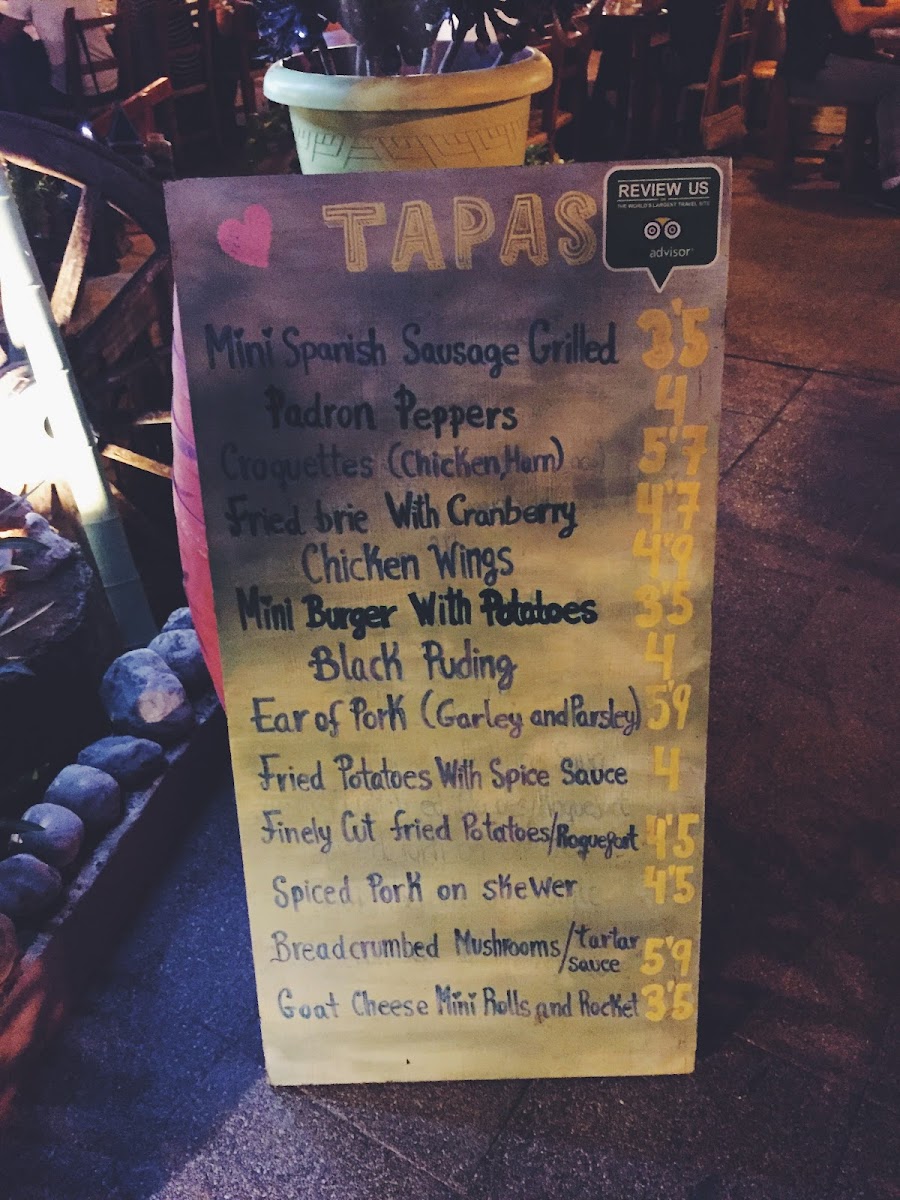 TAPAS
REVIEW US
ON
THE WORLD'S LARGEST TRAVEL SITE
advisor
Mini Spanish Sausage Grilled 3'5
Padron Peppers 4
Croquettes (Chicken, Ham) 5'7
Fried brie With Cranberry 4'7
Chicken Wings 4'9
Mini Burger With Potatoes 3'5
Black Puding 4
Ear of Pork (Garley and Parsley) 5'9
Fried Potatoes With Spice Sauce 4
Finely Cut fried Potatoes/Roquefort 4'5
Spiced Pork on skewer 4'5
Breadcrumbed Mushrooms/tartar
sauce 5'9
Goat Cheese Mini Rolls and Rocket 3'5